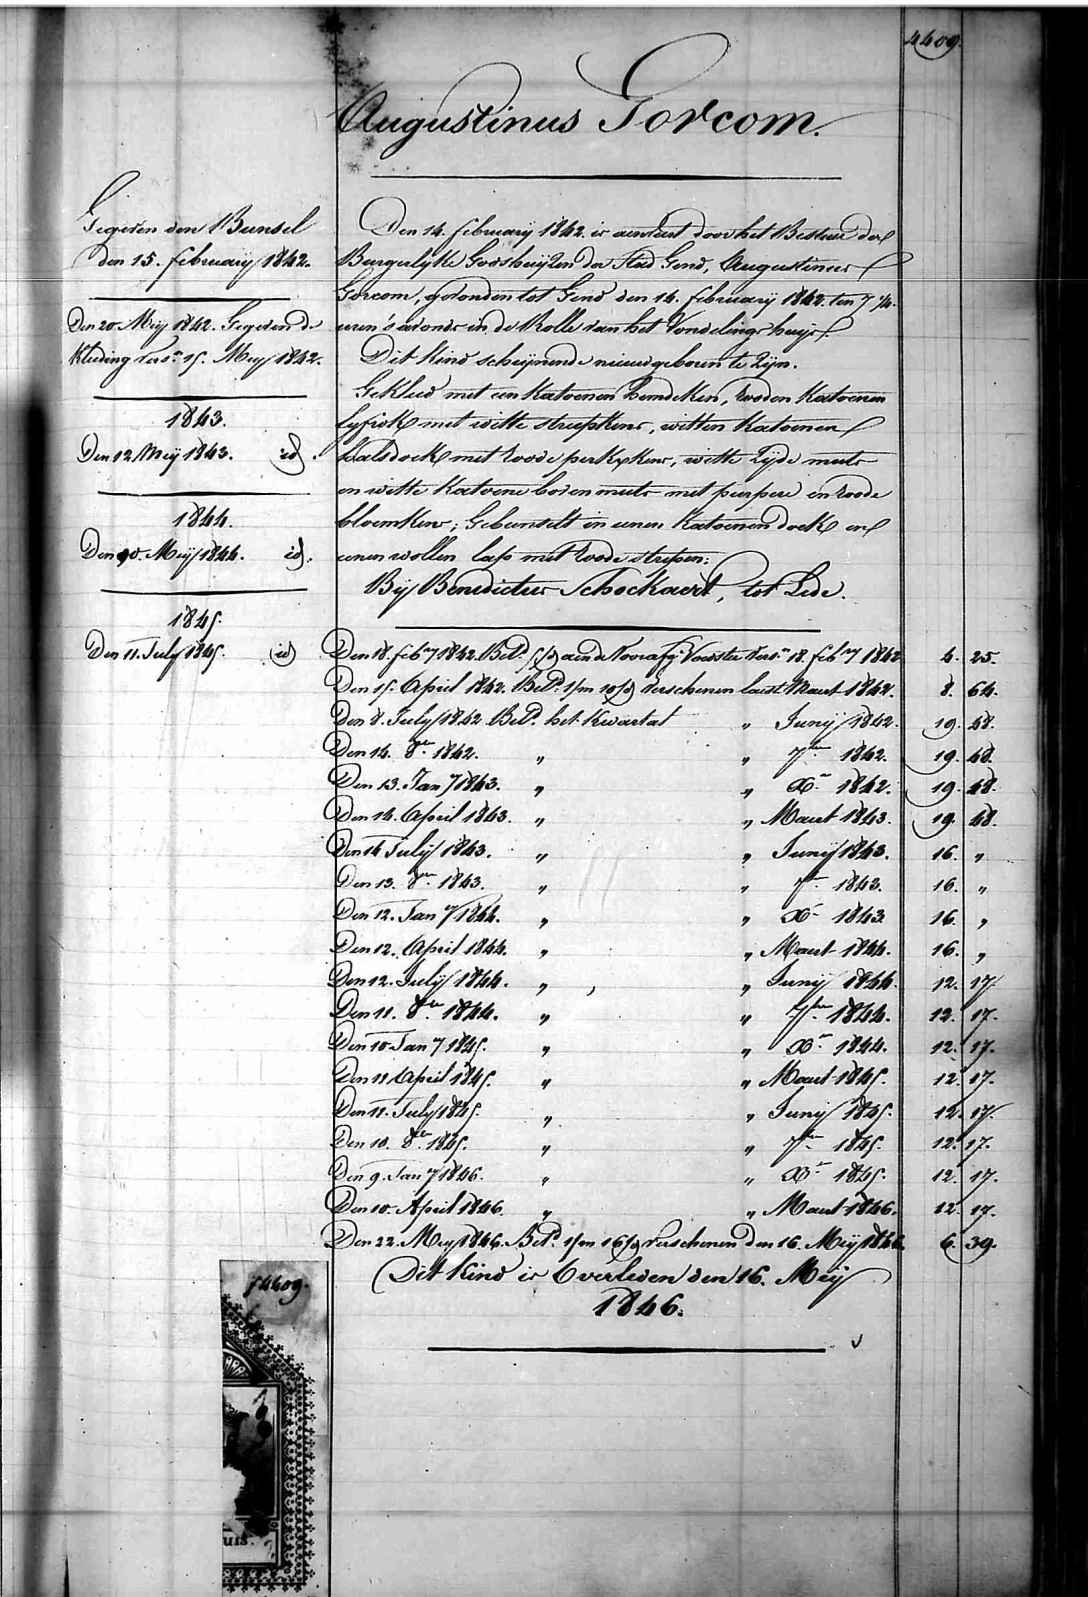 4409.
Augustinus Gorcom.
Gegeven den Bunsel
den 15. februarij 1842.
Den 20 Meij 1842. Gegeven de
Kleeding vers.n 15. Meij 1842.
1843.
Den 12 Meij 1843. id.
1844.
Den 10. Meij 1844. id.
1845.
Den 11. July 1845. id
Den 14. februarij 1842. is aenveert door het Bestuer der
Burgerlyke Godshuijzen der Stad Gend, Augustinus
Gorcom, gevonden tot Gend den 14. februarij 1842. ten 7 1/4.
uren 's avonds in de Rolle van het Vondelingshuijs.
Dit Kind scheijnende nieuwgeboren te Zijn.
Gekleed met een Katoenen hemdeken, rooden Katoenen
lyfrok met witte streepkens, witten Katoenen
halsdoek met roode perkxkens, witte Zyde muts
en witte Katoene boven muts met purpere en roode
bloemkens; Gebunselt in eenen Katoenen doek en
eenen wollen lap met roode strepen:
Bij Benedictus Schockaert, tot Lede.
Den 18. feb.y 1842. Bet.d aen de Voorafg. Voedster vers.n 18. feb.y 1842 4. 25.
Den 15. April 1842. Bet.d 1/m 10/d verschenen laest Maert 1842. 8. 64.
Den 8. July 1842. Bet.d het Kwartal " Junij 1842. 19. 48.
Den 14. 8.er 1842. " " 7.er 1842. 19. 48.
Den 13. Jan.y 1843. " " X.r 1842. 19. 48.
Den 14. April 1843. " " Maert 1843. 19. 48.
Den 14 July 1843. " " Junij 1843. 16. "
Den 13. 8.er 1843. " " 7.er 1843. 16. "
Den 12. Jan.y 1844. " " X.r 1843 16. "
Den 12. April 1844. " " Maert 1844. 16. "
Den 12. July 1844. " " Junij 1844. 12. 17.
Den 11. 8.er 1844. " " 7.er 1844. 12. 17.
Den 10 Jan.y 1845. " " X.r 1844. 12. 17.
Den 11 April 1845. " " Maert 1845. 12. 17.
Den 11. July 1845. " " Junij 1845. 12. 17.
Den 10. 8.er 1845. " " 7.er 1845. 12. 17.
Den 9. Jan.y 1846. " " X.r 1845. 12. 17.
Den 10. April 1846. " " Maert 1846. 12. 17.
Den 22. Mey 1846. Bet.d 1/m 16/d verschenen den 16. Meij 1846. 6. 39.
Dit Kind is Overleden den 16. Meij
1846.
4409.
uis.